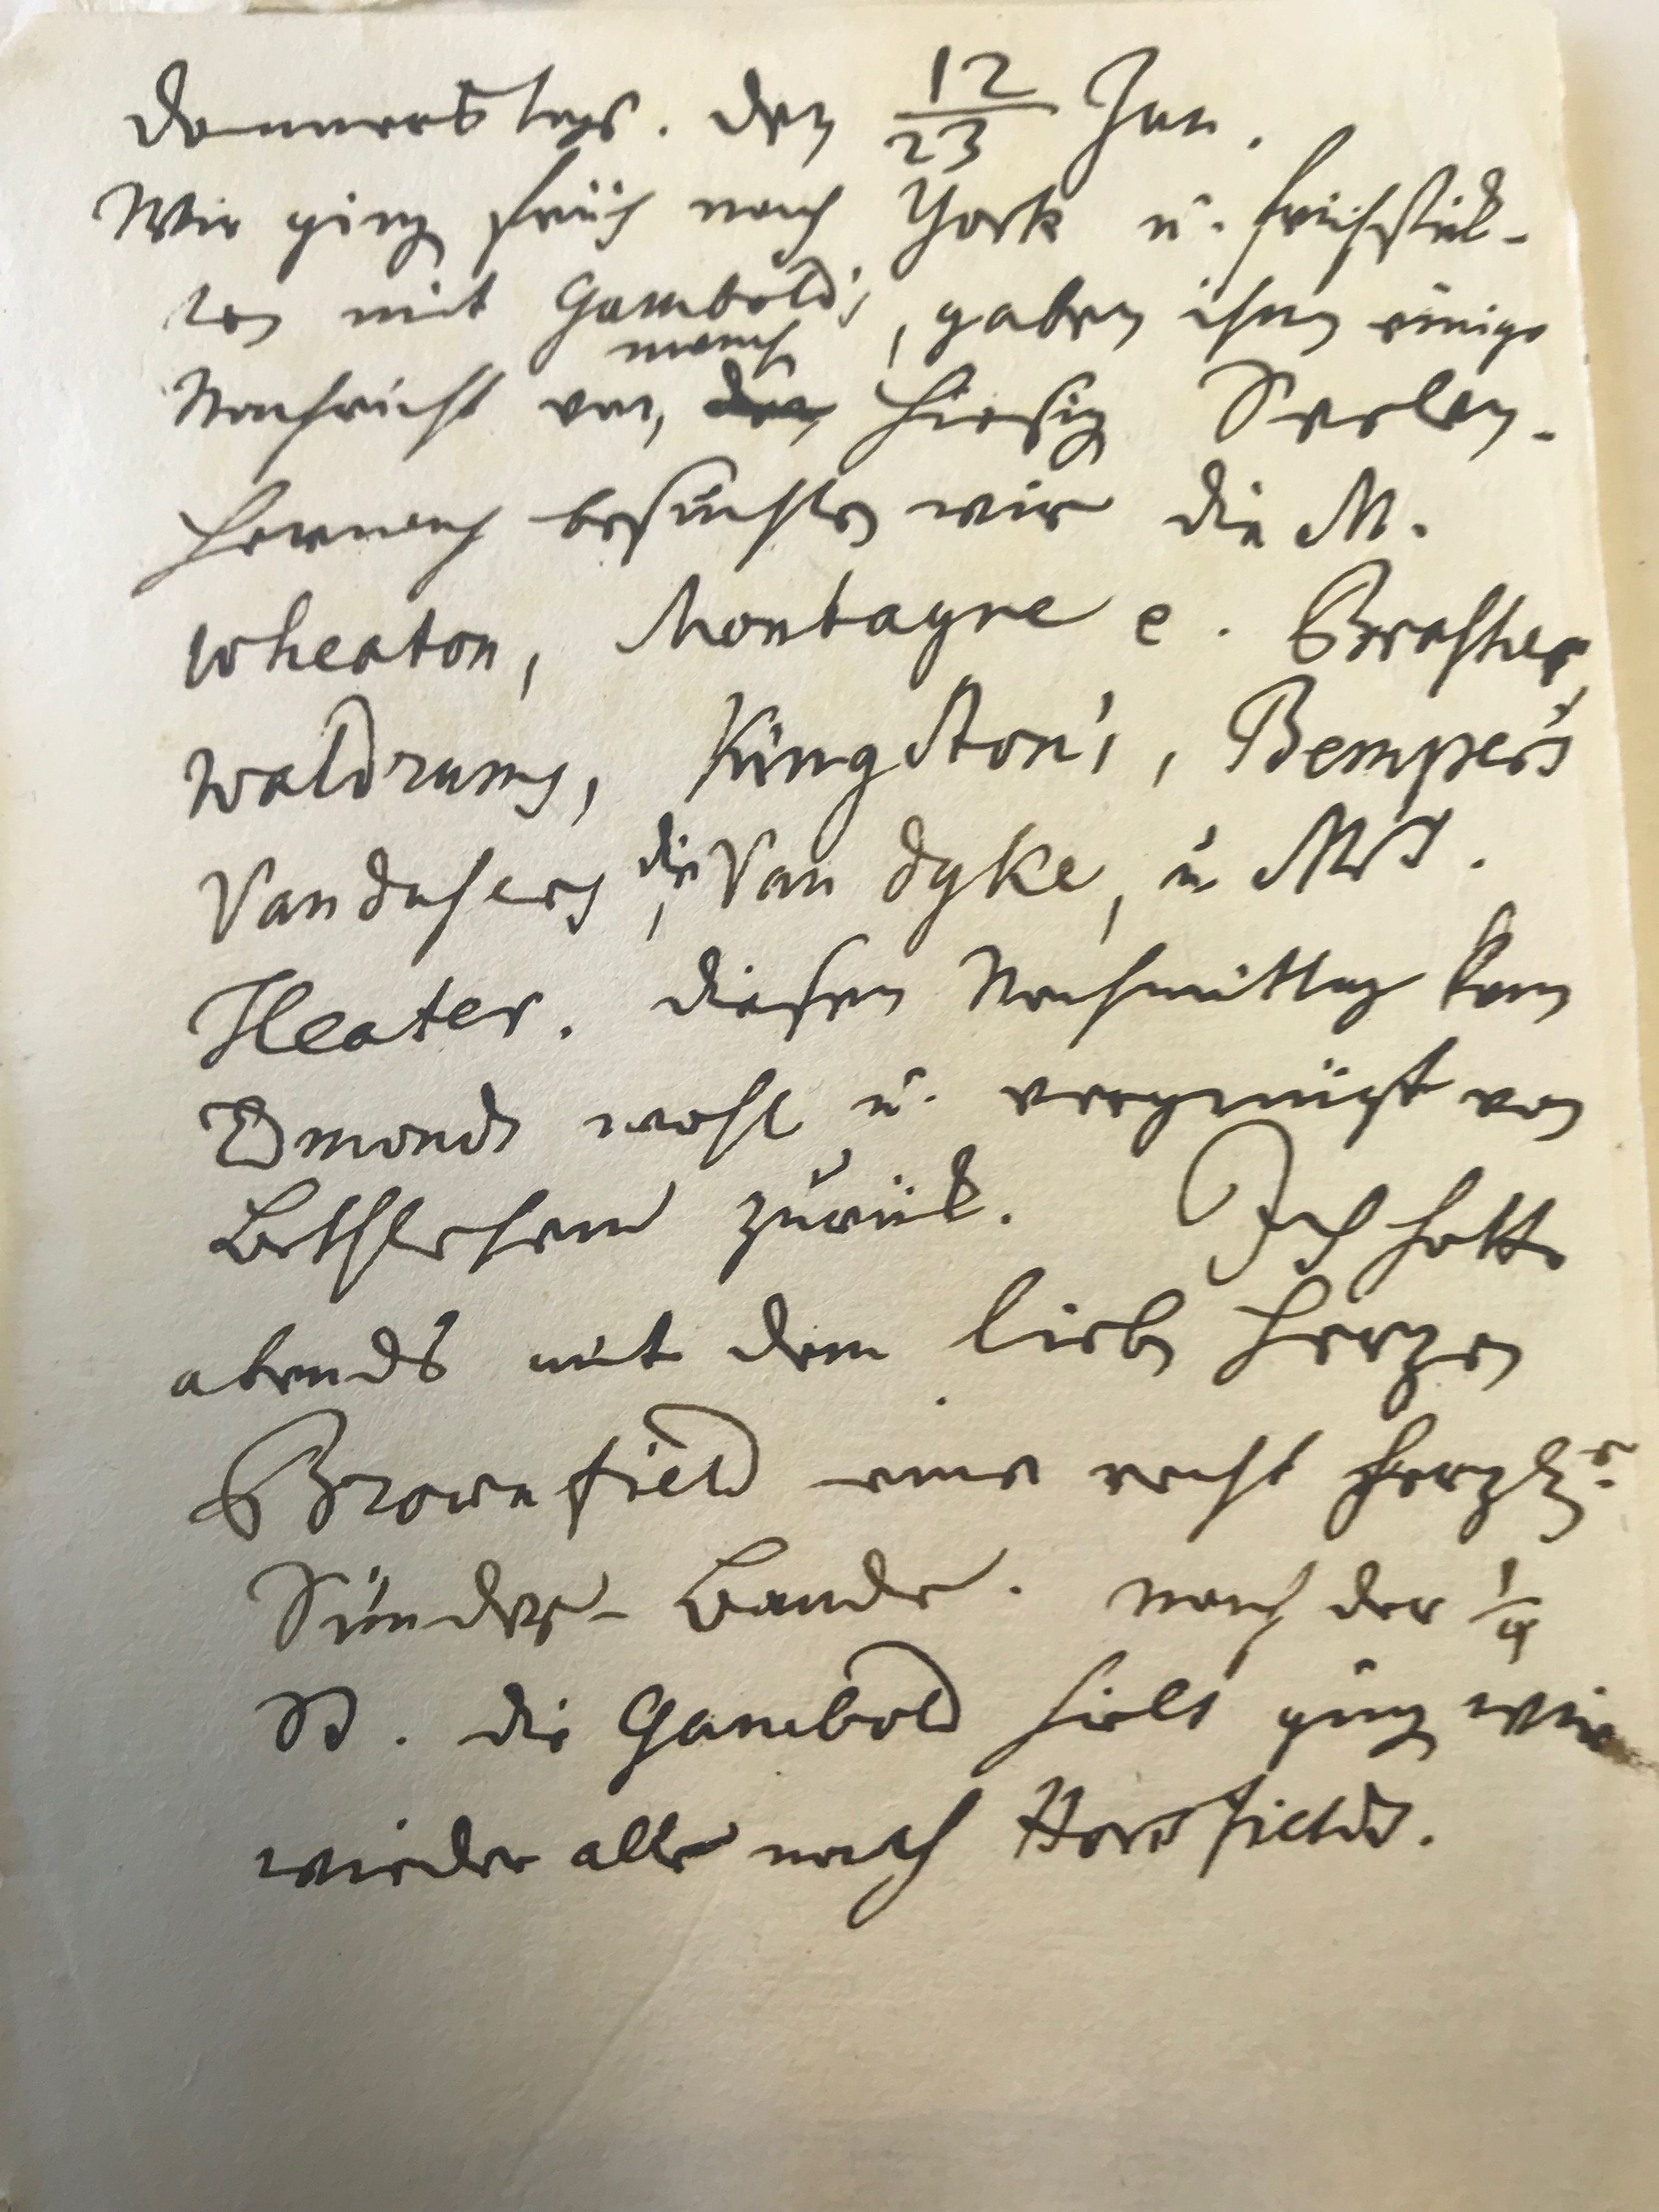 Donnerstags. den 12/23 Jan.
Wir ging früh nach York u. frühstük-
ten mit Gambolds, gaben ihm einige
manch
Nachricht von hiesig Seelen.
Hernach besuchten wir die M.
Wheaton, Montagne e. Brasher,
Waldrums, Kingston's, Bemper's
Vandusers, die Van Dyke, u Mrs.
Theater. Diesen Nachmittag kam
Edmonds wohl u. vergnügt von
Bethlehem zurük. Ich hatte
abends mit dem lieb Herzen
Brownfield eine recht herzl.e
Sünder-Bande. Nach der 1/4
St. die Gambold hielt ging wir
wieder alle nach Horsfields.